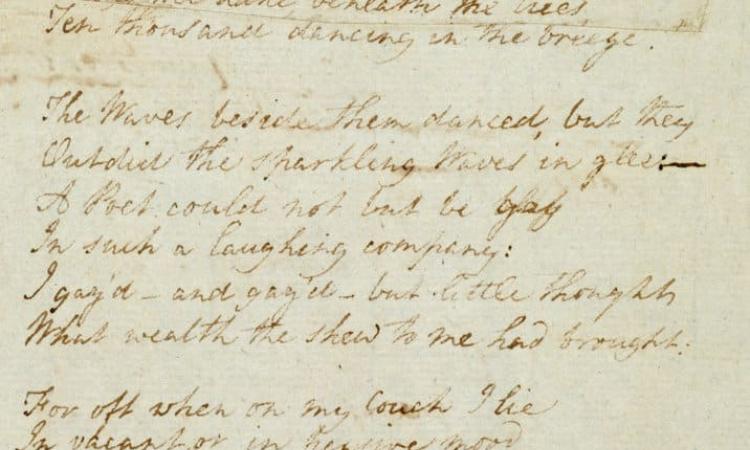 the Lake, beneath the trees
Ten thousand dancing in the breeze.
The Waves beside them danced, but they
Outdid the sparkling Waves in glee:—
A Poet could not but be gay
In such a laughing company:
I gaz'd – and gaz'd – but little thought
What wealth the shew to me had brought:
For oft when on my Couch I lie
In vacant or in pensive mood